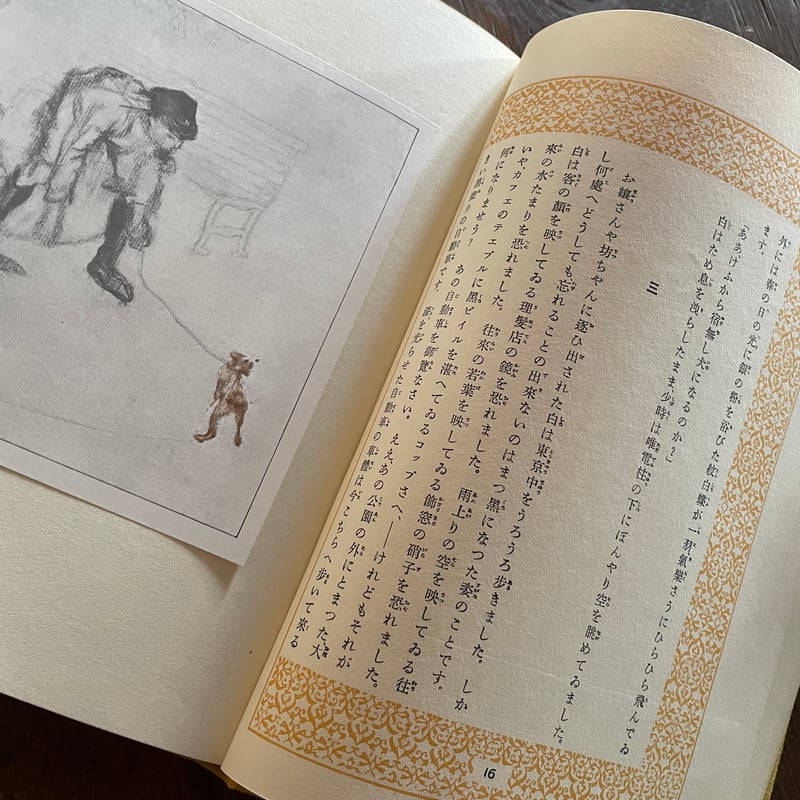 外には春の日の光に銀の粉を浴びた紋白蝶が一羽、氣樂さうにひらひら飛んでゐ
ます。
「ああ、けふから宿無し犬になるのか?」
白はため息を洩らしたまま、少時は唯電柱の下にぼんやり空を眺めてゐました。
三
お孃さんや坊ちやんに逐ひ出された白は東京中をうろうろ歩きました。しか
し何處へどうしても忘れることの出來ないのはまつ黑になつた姿のことです。
白は客の顏を映してゐる理髮店の鏡を恐れました。雨上りの空を映してゐる往
來の水たまりを恐れました。往來の若葉を映してゐる飾窓の硝子を恐れました。
いや、カフェのテエブルに黑ビイルを湛へてゐるコップさへ、――けれどもそれが
何になりませう?あの自動車を御覽なさい。ええ、あの公園の外にとまつた、大
きい黑塗りの自動車です。漆を光らせた自動車の車體は今こちらへ歩いて來る
16